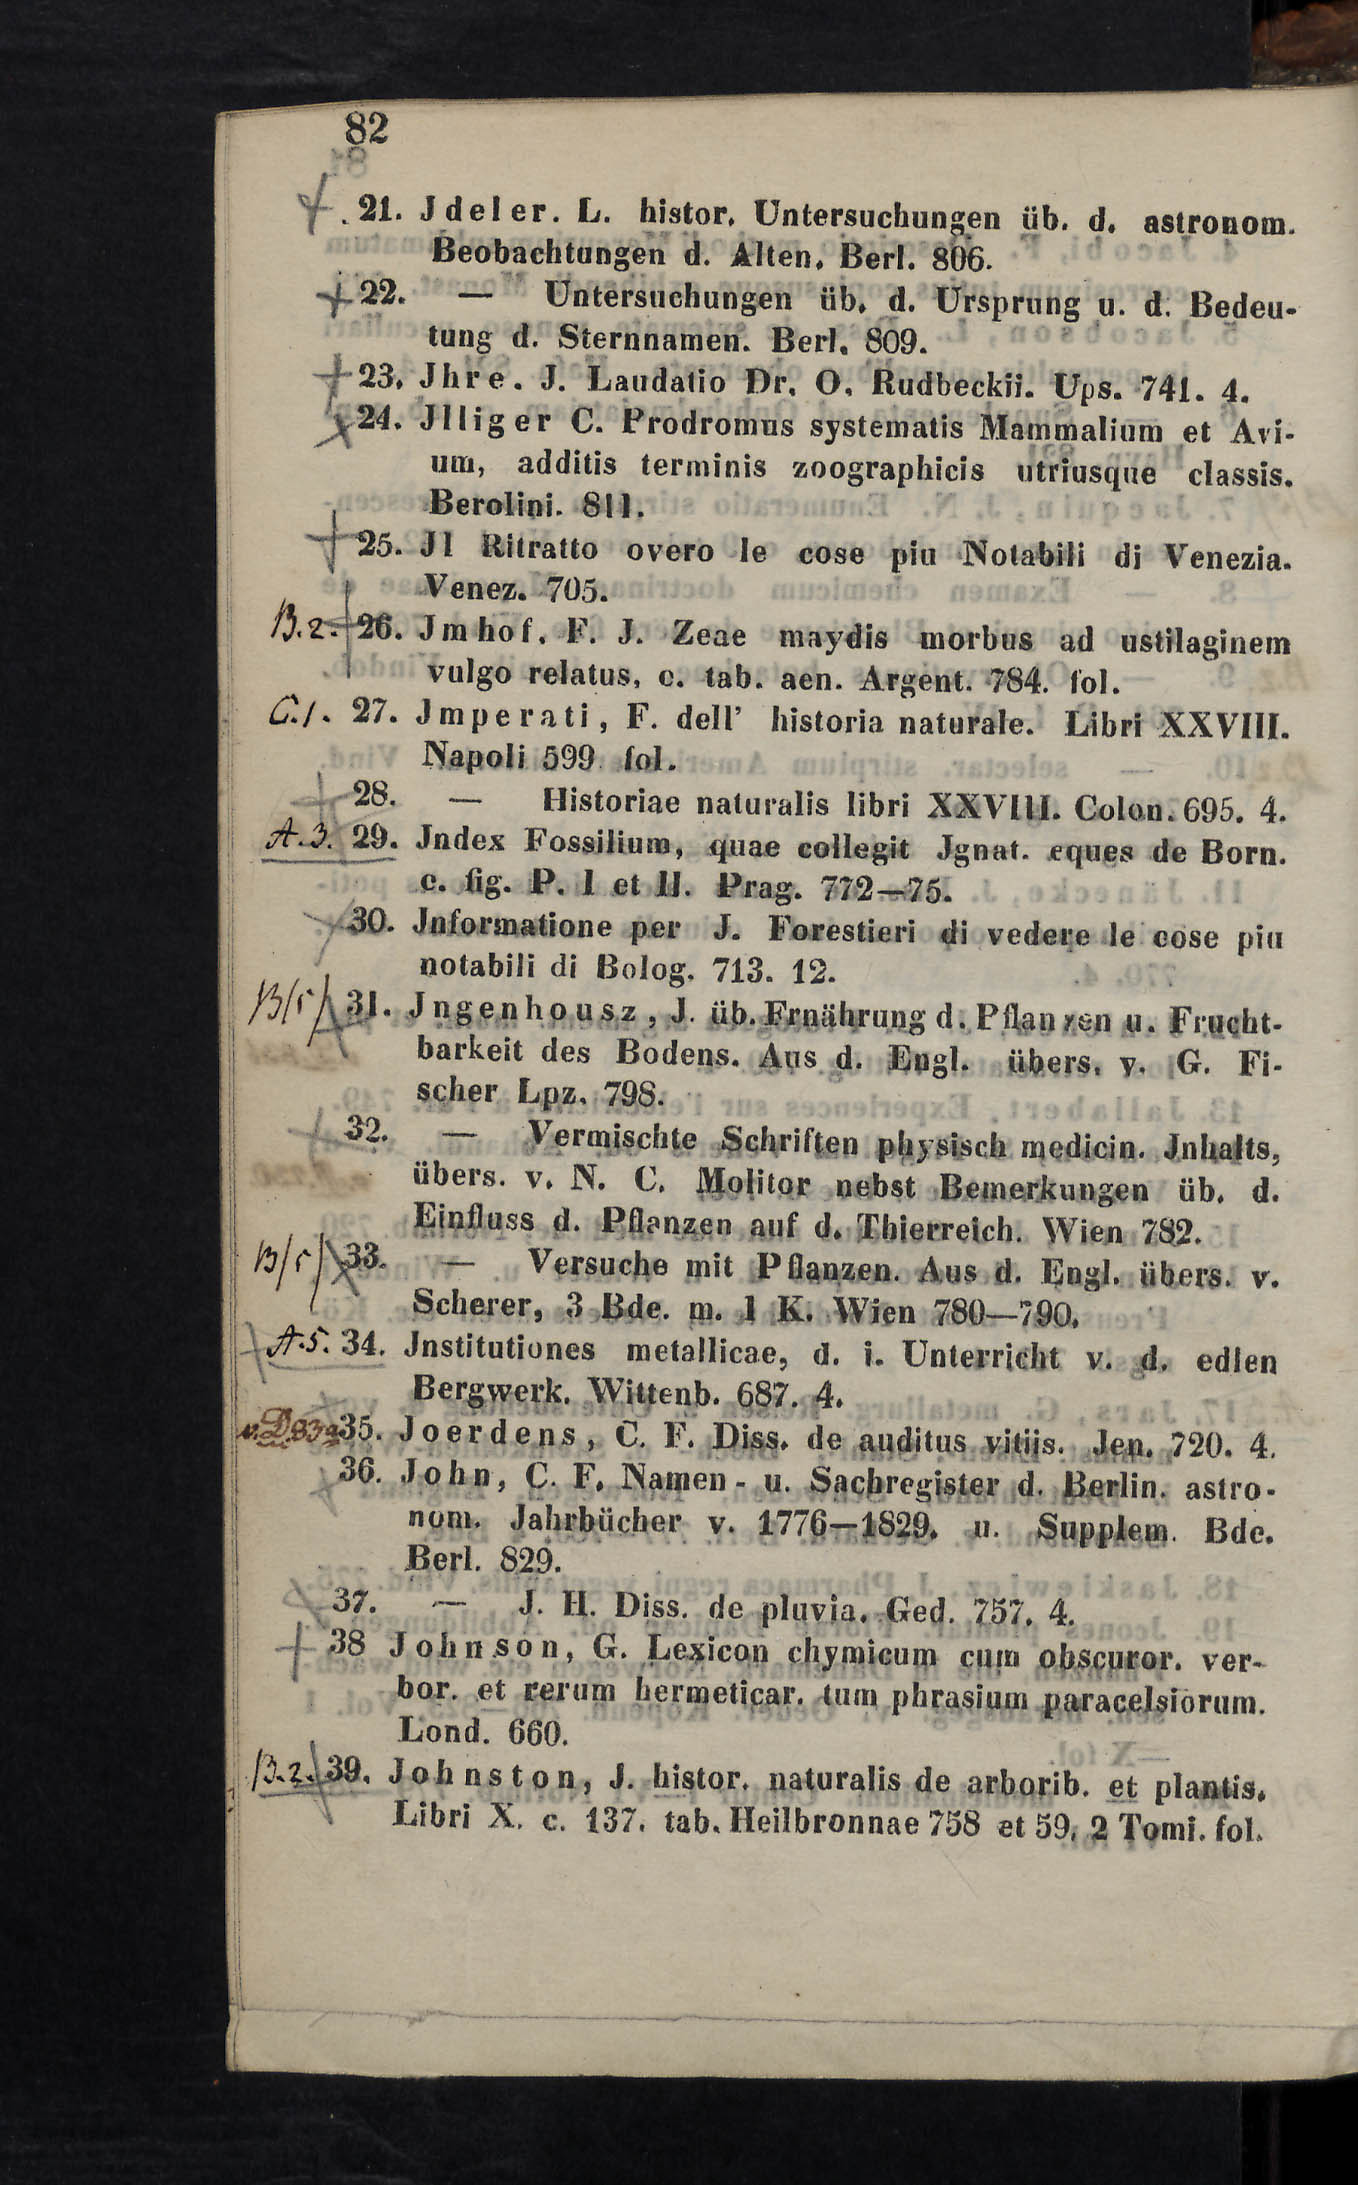 82
21. Jdeler. L. histor. Untersuchungen üb. d. astronom.
Beobachtungen d. Alten. Berl. 806.
22. — Untersuchungen üb. d. Ursprung u. d. Bedeu-
tung d. Sternnamen. Berl. 809.
23. Jhre. J. Laudatio Dr. O. Rudbeckii. Ups. 741. 4.
24. Jlliger C. Prodromus systematis Mammalium et Avi-
um, additis terminis zoographicis utriusque classis.
Berolini. 811.
25. Jl Ritratto overo le cose piu Notabili di Venezia.
Venez. 705.
B.2. 26. Jmhof. F. J. Zeae maydis morbus ad ustilaginem
vulgo relatus, c. tab. aen. Argent. 784. fol.
C.1. 27. Jmperati, F. dell' historia naturale. Libri XXVIII.
Napoli 599 fol.
28. — Historiae naturalis libri XXVIII. Colon. 695. 4.
A.3. 29. Jndex Fossilium, quae collegit Jgnat. eques de Born.
c. fig. P. I et II. Prag. 772—75.
30. Jnformatione per J. Forestieri di vedere le cose piu
notabili di Bolog. 713. 12.
B/5/ 31. Jngenhousz, J. üb. Ernährung d. Pflanzen u. Frucht-
barkeit des Bodens. Aus d. Engl. übers. v. G. Fi-
scher Lpz. 798.
32. — Vermischte Schriften physisch medicin. Jnhalts,
übers. v. N. C. Molitor nebst Bemerkungen üb. d.
Einfluss d. Pflanzen auf d. Thierreich. Wien 782.
B/5/ 33. — Versuche mit Pflanzen. Aus d. Engl. übers. v.
Scherer, 3 Bde. m. 1 K. Wien 780—790.
A.5. 34. Jnstitutiones metallicae, d. i. Unterricht v. d. edlen
Bergwerk. Wittenb. 687. 4.
35. Joerdens, C. F. Diss. de auditus vitiis. Jen. 720. 4.
36. John, C. F. Namen- u. Sachregister d. Berlin. astro-
nom. Jahrbücher v. 1776—1829. u. Supplem. Bde.
Berl. 829.
37. — J. H. Diss. de pluvia. Ged. 757. 4.
38 Johnson, G. Lexicon chymicum cum obscuror. ver-
bor. et rerum hermeticar. tum phrasium paracelsiorum.
Lond. 660.
B.2. 39. Johnston, J. histor. naturalis de arborib. et plantis.
Libri X. c. 137. tab. Heilbronnae 758 et 59. 2 Tomi. fol.